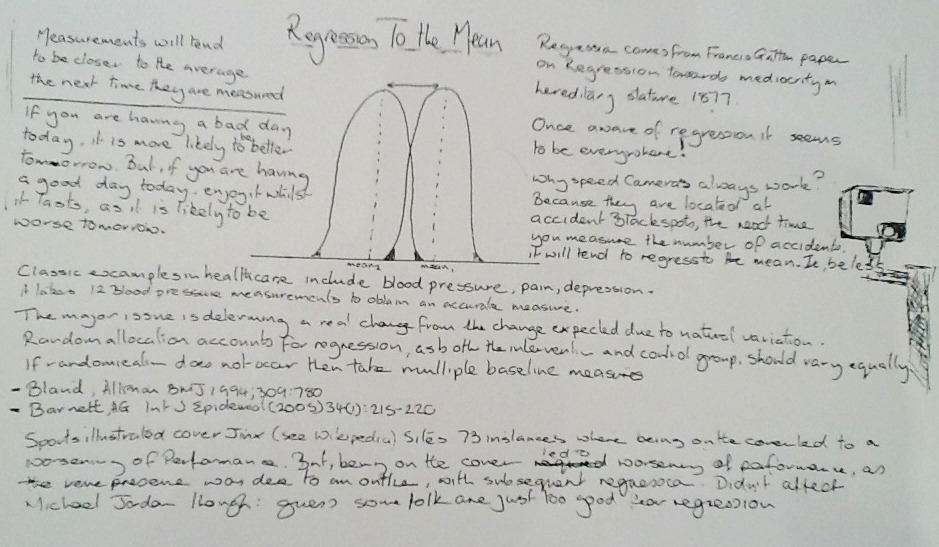 Regression To the Mean
Measurements will tend
to be closer to the average
the next time they are measured
If you are having a bad day
today, it is more likely to be better
tommorrow. But, if you are having
a good day today. enjoy it whilst
it lasts, as it is likely to be
worse tomorrow.
mean2 mean1
Regression comes from Francis Galton paper
on Regression towards mediocrity in
hereditary stature 1877.
Once aware of regression it seems
to be everywhere!
Why speed Cameras always work?
Because they are located at
accident Blackspots, the next time
you measure the number of accidents,
it will tend to regress to the mean. Ie, be less
Classic examples in healthcare include blood pressure, pain, depression.
it takes 12 Blood pressure measurements to obtain an accurate measure.
The major issue is determing a real change from the change expected due to natural variation.
Random allocation accounts for regression, as both the intervention and control group, should vary equally.
If randomisation does not occur then take multiple baseline measures
- Bland, Altman BMJ 1994; 309:780
- Barnett, AG Int J Epidemiol (2005) 34(1): 215-220
Sports illustrated cover Jinx (see Wikipedia) Sites 73 instances where being on the cover led to a
worsening of Performance. But, being on the cover led to worsening of performance, as
the was due to an outlier, with subsequent regression. Didn't affect
Michael Jordan though: guess some folk are just too good for regression